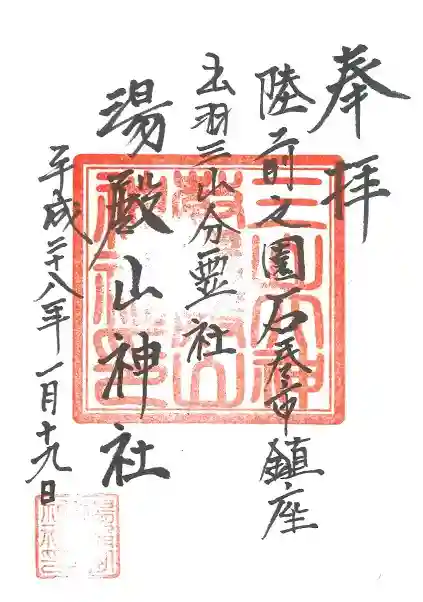 奉拝
陸前之國石巻市鎮座
出羽三山分霊社
湯殿山神社
平成二十八年一月十九日